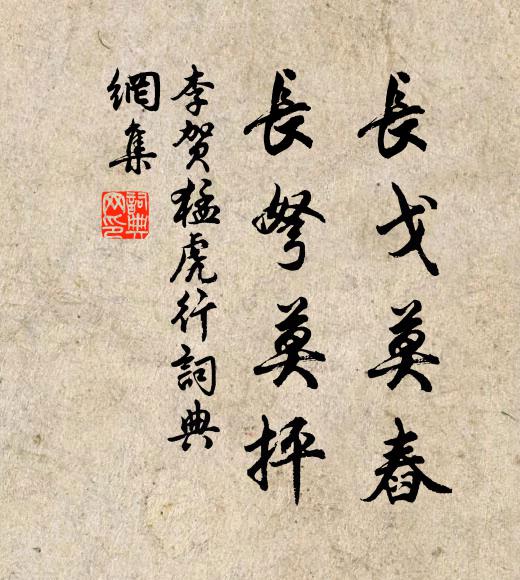 長戈莫舂
長弩莫抨
李賀猛虎行詞典
網集
詞典
网印